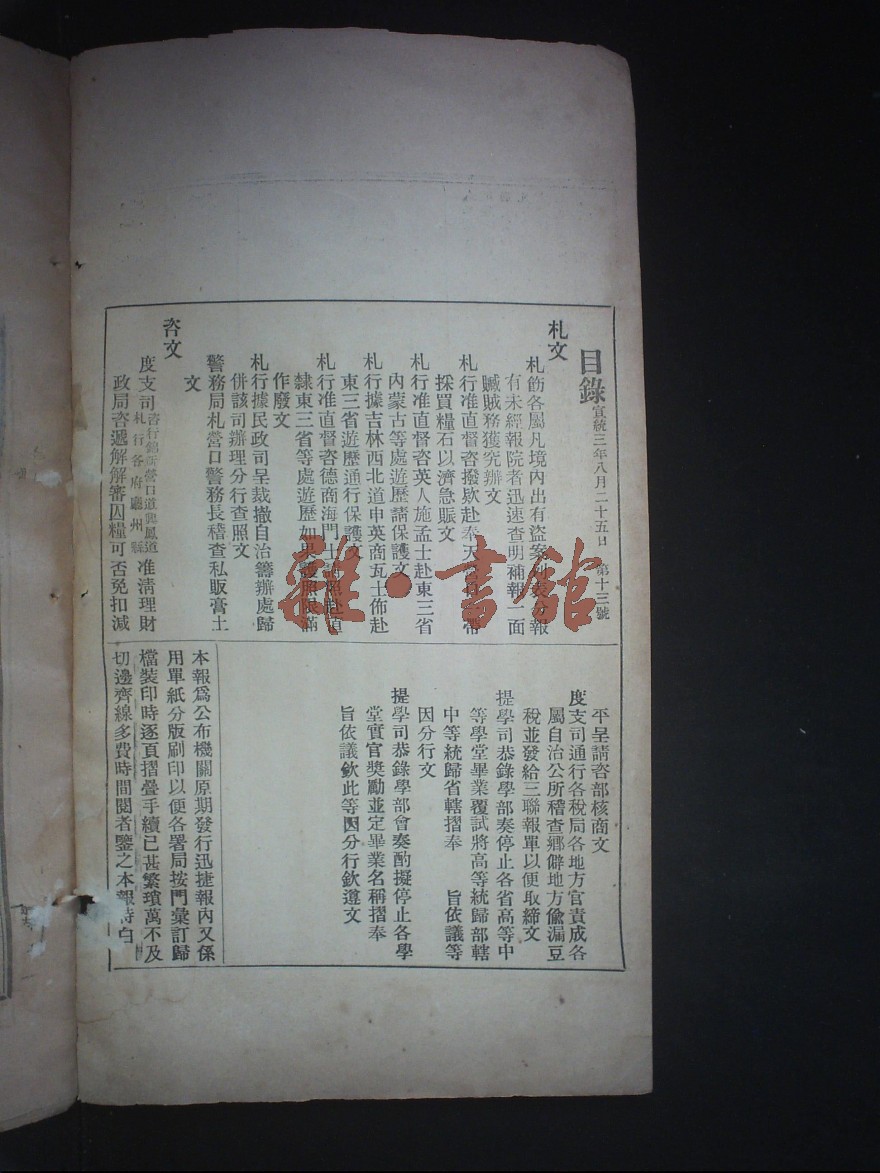 目錄 宣統三年八月二十五日 第十三號
札文
札飭各屬凡境內出有盜案列表分報
有未經報院者迅速查明補報一面
贓賊務獲究辦文
札行准直督咨撥欵赴奉天
採買糧石以濟急賑文
札行准直督咨英人施孟士赴東三省
內蒙古等處遊歷請保護文
札行據吉林西北道申英商瓦士佈赴
東三省遊歷通行保護文
札行准直督咨德商海門士請照赴直
隸東三省等處遊歷如果護照限滿
作廢文
札行據民政司呈裁撤自治籌辦處歸
併該司辦理分行查照文
警務局札營口警務長稽查私販膏土
文
咨文
度支司咨行錦新營口道興鳳道札行各府廳州縣准清理財
政局咨遞解解審囚糧可否免扣減
平呈請咨部核商文
度支司通行各稅局各地方官責成各
屬自治公所稽查鄉僻地方偸漏豆
稅並發給三聯報單以便取締文
提學司恭錄學部奏停止各省高等中
等學堂畢業覆試將高等統歸部轄
中等統歸省轄摺奉 旨依議等
因分行文
提學司恭錄學部會奏酌擬停止各學
堂實官獎勵並定畢業名稱摺奉
旨依議欽此等因分行欽遵文
本報爲公布機關原期發行迅捷報內又係
用單紙分版刷印以便各署局按門彙訂歸
檔裝印時逐頁摺疊手續已甚繁瑣萬不及
切邊齊線多費時間閱者鑒之本報特白
雜·書館